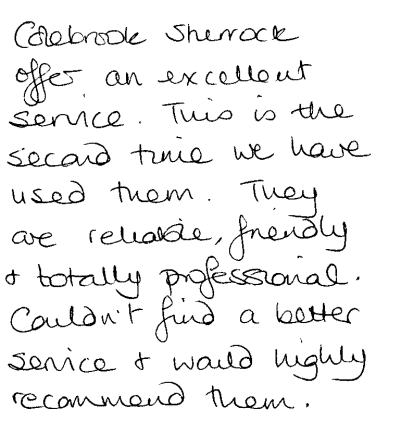 Colebrook Sherrock
offer an excellent
service. This is the
second time we have
used them. They
are reliable, friendly
& totally professional.
Couldn't find a better
service & would highly
recommend them.